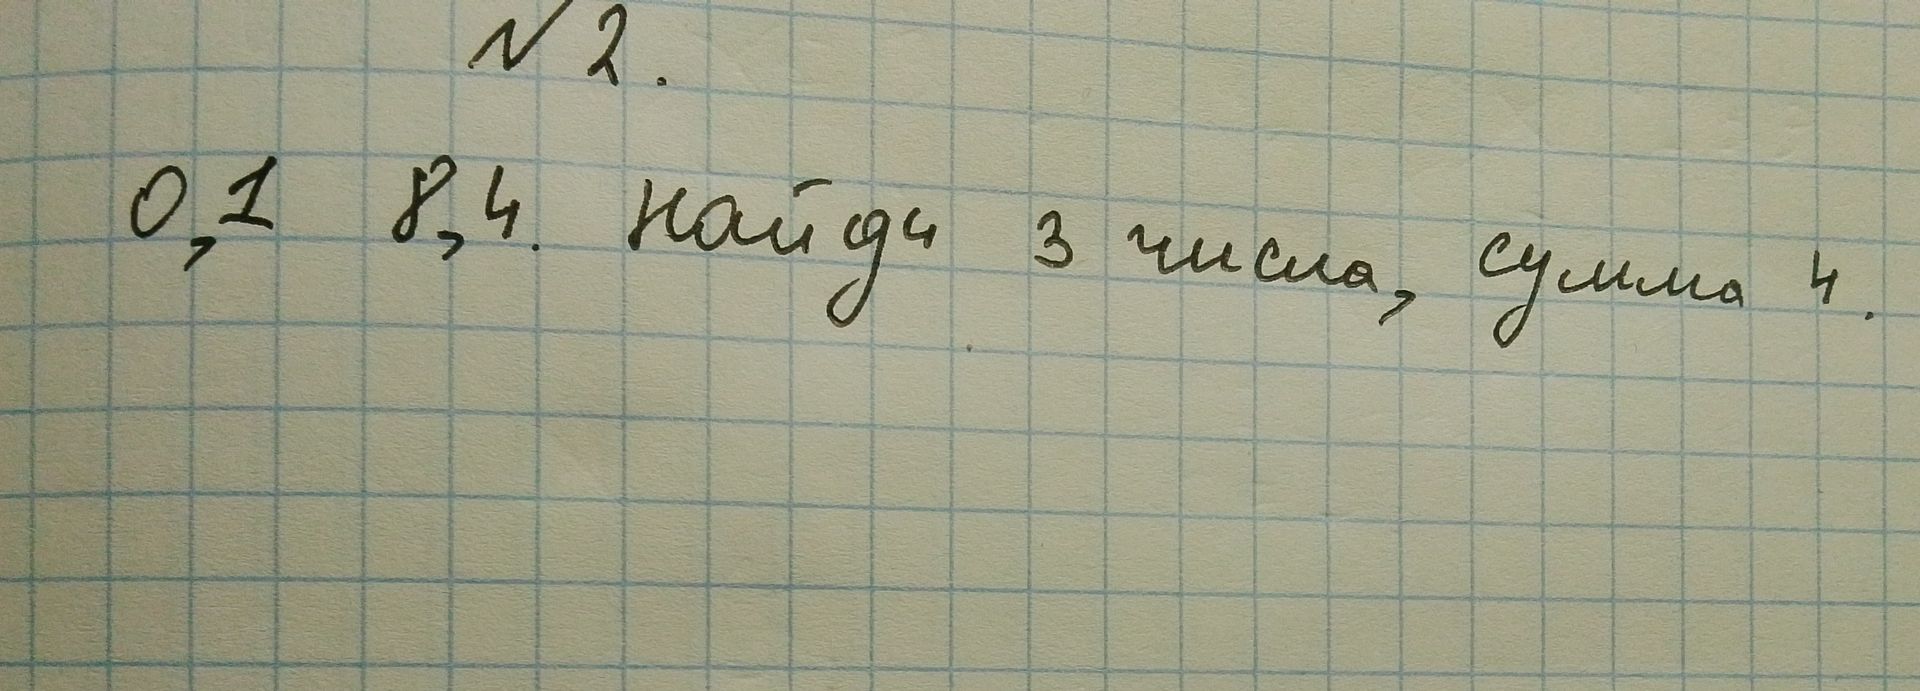 №2.
0,1 8,4. найди 3 числа, сумма 4.